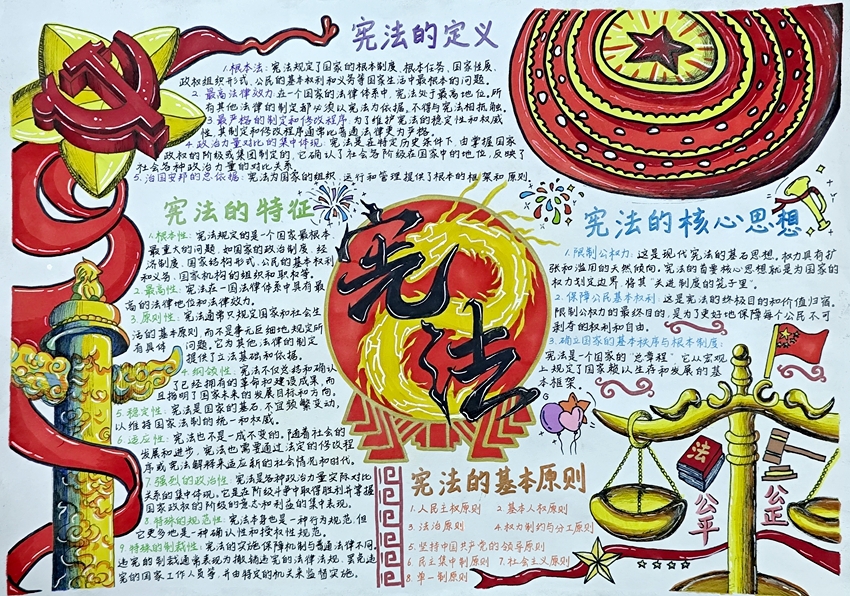 宪法的定义
1.根本法:宪法规定了国家的根本制度、根本任务、国家性质、
政权组织形式、公民的基本权利和义务等国家生活中最根本的问题。
2.最高法律效力:在一个国家的法律体系中,宪法处于最高地位,所
有其他法律的制定都必须以宪法为依据,不得与宪法相抵触。
3.最严格的制定和修改程序:为了维护宪法的稳定性和权威
性,其制定和修改程序通常比普通法律更为严格。
4.政治力量对比的集中体现:宪法是在特定历史条件下,由掌握国家
政权的阶级或集团制定的,它确认了社会各阶级在国家中的地位,反映了
社会各种政治力量的对比关系。
5.治国安邦的总依据:宪法为国家的组织、运行和管理提供了根本的框架和原则
宪法的特征
1.根本性:宪法规定的是一个国家最根本、
最重大的问题,如国家的政治制度、经
济制度、国家结构形式、公民的基本权利
和义务、国家机构的组织和职权等。
2.最高性:宪法在一国法律体系中具有最
高的法律地位和法律效力。
3.原则性:宪法通常只规定国家和社会生
活的基本原则,而不是事无巨细地规定所
有具体问题,它为其他法律的制定
提供了立法基础和依据。
4.纲领性:宪法不仅总结和确认
了已经拥有的革命和建设成果,而
且指明了国家未来的发展目标和方向。
5.稳定性:宪法是国家的基石,不宜频繁变动,
以维持国家法制的统一和权威。
6.适应性:宪法也不是一成不变的,随着社会的
发展和进步,宪法也需要通过法定的修改程
序或宪法解释来适应新的社会情况和时代。
7.强烈的政治性:宪法是各种政治力量实际对比
关系的集中体现。它是在阶级斗争中取得胜利并掌握
国家政权的阶级的意志和利益的集中表现。
8.特殊的规范性:宪法本身也是一种行为规范,但
它更多地是一种确认性和授权性规范。
9.特殊的制裁性:宪法的实施保障机制与普通法律不同,
违宪的制裁通常表现为撤销违宪的法律法规、罢免违
宪的国家工作人员等,并由特定的机关来监督实施。
宪法
宪法的核心思想
1.限制公权力:这是现代宪法的基石思想。权力具有扩
张和滥用的天然倾向。宪法的首要核心思想就是为国家的
权力划定边界,将其“关进制度的笼子里”。
2.保障公民基本权利:这是宪法的终极目的和价值归宿。
限制公权力的最终目的,是为了更好地保障每个公民不可
剥夺的权利和自由。
3.确立国家的基本秩序与根本制度:
宪法是一个国家的“总章程”,它从宏观
上规定了国家赖以生存和发展的基
本框架。
宪法的基本原则
1.人民主权原则 2.基本人权原则
3.法治原则 4.权力制约与分工原则
5.坚持中国共产党的领导原则
6.民主集中制原则 7.社会主义原则
8.单一制原则
法
公平
公正